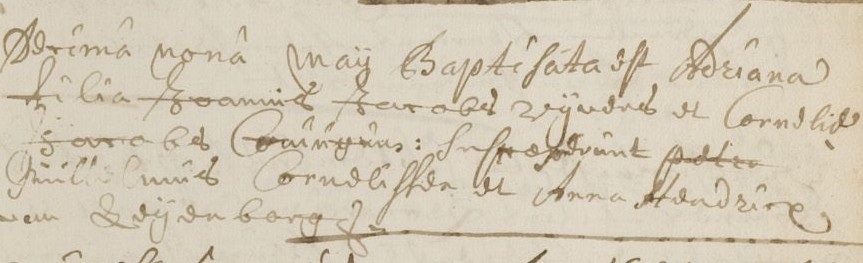 Decima nona May Baptisata est Adriana
filia Joannis Jacobs Reijners et Cornelie
Jacobs Conjugum: Susceperunt Petro
Guillelmus Cornelissen et Anna Hendricx
van Reijenborg